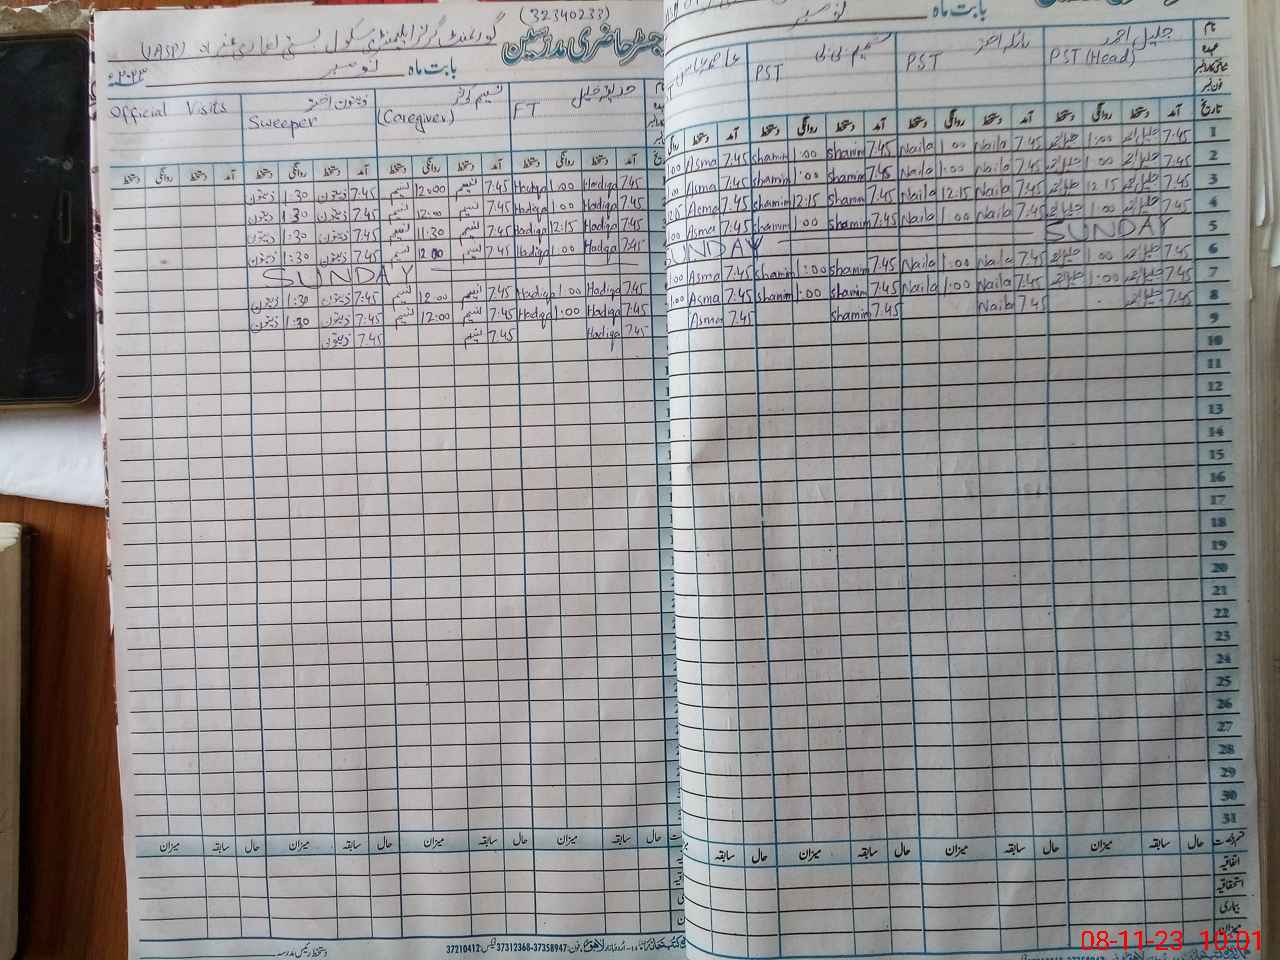 (32340233)
رجسٹر حاضری مدرسین
گورنمنٹ گرلز ایلیمنٹری سکول بستی
بابت ماہ نومبر ۲۰۲۳ء
Official Visits
Sweeper
(Caregiver)
FT
دستخط روانگی دستخط آمد دستخط روانگی دستخط آمد دستخط روانگی دستخط آمد دستخط روانگی دستخط آمد
زیتون 1:30 زیتون 7:45 نسیم 12:00 نسیم 7:45 Hadiqa 1:00 Hadiqa 7:45
زیتون 1:30 زیتون 7:45 نسیم 12:00 نسیم 7:45 Hadiqa 1:00 Hadiqa 7:45
زیتون 1:30 زیتون 7:45 نسیم 11:30 نسیم 7:45 Hadiqa 12:15 Hadiqa 7:45
زیتون 1:30 زیتون 7:45 نسیم 12:00 نسیم 7:45 Hadiqa 1:00 Hadiqa 7:45
SUNDAY
زیتون 1:30 زیتون 7:45 نسیم 12:00 نسیم 7:45 Hadiqa 1:00 Hadiqa 7:45
زیتون 1:30 زیتون 7:45 نسیم 12:00 نسیم 7:45 Hadiqa 1:00 Hadiqa 7:45
زیتون 7:45 نسیم 7:45 Hadiqa 7:45
میزان سابقہ حال میزان سابقہ حال میزان سابقہ حال میزان سابقہ حال
دستخط رئیس مدرسہ
37210412 فیکس: 37312368-37358947 فون:
بابت ماہ نومبر
نام
جلیل احمد
PST (Head)
نائلہ احمد
PST
شمیم بی بی
PST
تاریخ
آمد دستخط روانگی دستخط آمد دستخط روانگی دستخط آمد دستخط روانگی دستخط آمد دستخط
1:00 Asma 7:45 Shamim 1:00 Shamim 7:45 Naila 1:00 Naila 7:45 1:00 7:45 1
Asma 7:45 Shamim 1:00 Shamim 7:45 Naila 1:00 Naila 7:45 1:00 7:45 2
12:15 Asma 7:45 Shamim 12:15 Shamim 7:45 Naila 12:15 Naila 7:45 12:15 7:45 3
1:00 Asma 7:45 Shamim 1:00 Shamim 7:45 Naila 1:00 Naila 7:45 1:00 7:45 4
SUNDAY SUNDAY 5
1:00 Asma 7:45 Shamim 1:00 Shamim 7:45 Naila 1:00 Naila 7:45 1:00 7:45 6
1:00 Asma 7:45 Shamim 1:00 Shamim 7:45 Naila 1:00 Naila 7:45 1:00 7:45 7
Asma 7:45 Shamim 7:45 Naila 7:45 7:45 8
9
10
11
12
13
14
15
16
17
18
19
20
21
22
23
24
25
26
27
28
29
30
31
سابقہ حال میزان سابقہ حال میزان سابقہ حال میزان سابقہ حال
اتفاقیہ
استحقاقیہ
بیماری
میزان
08-11-23 10:01